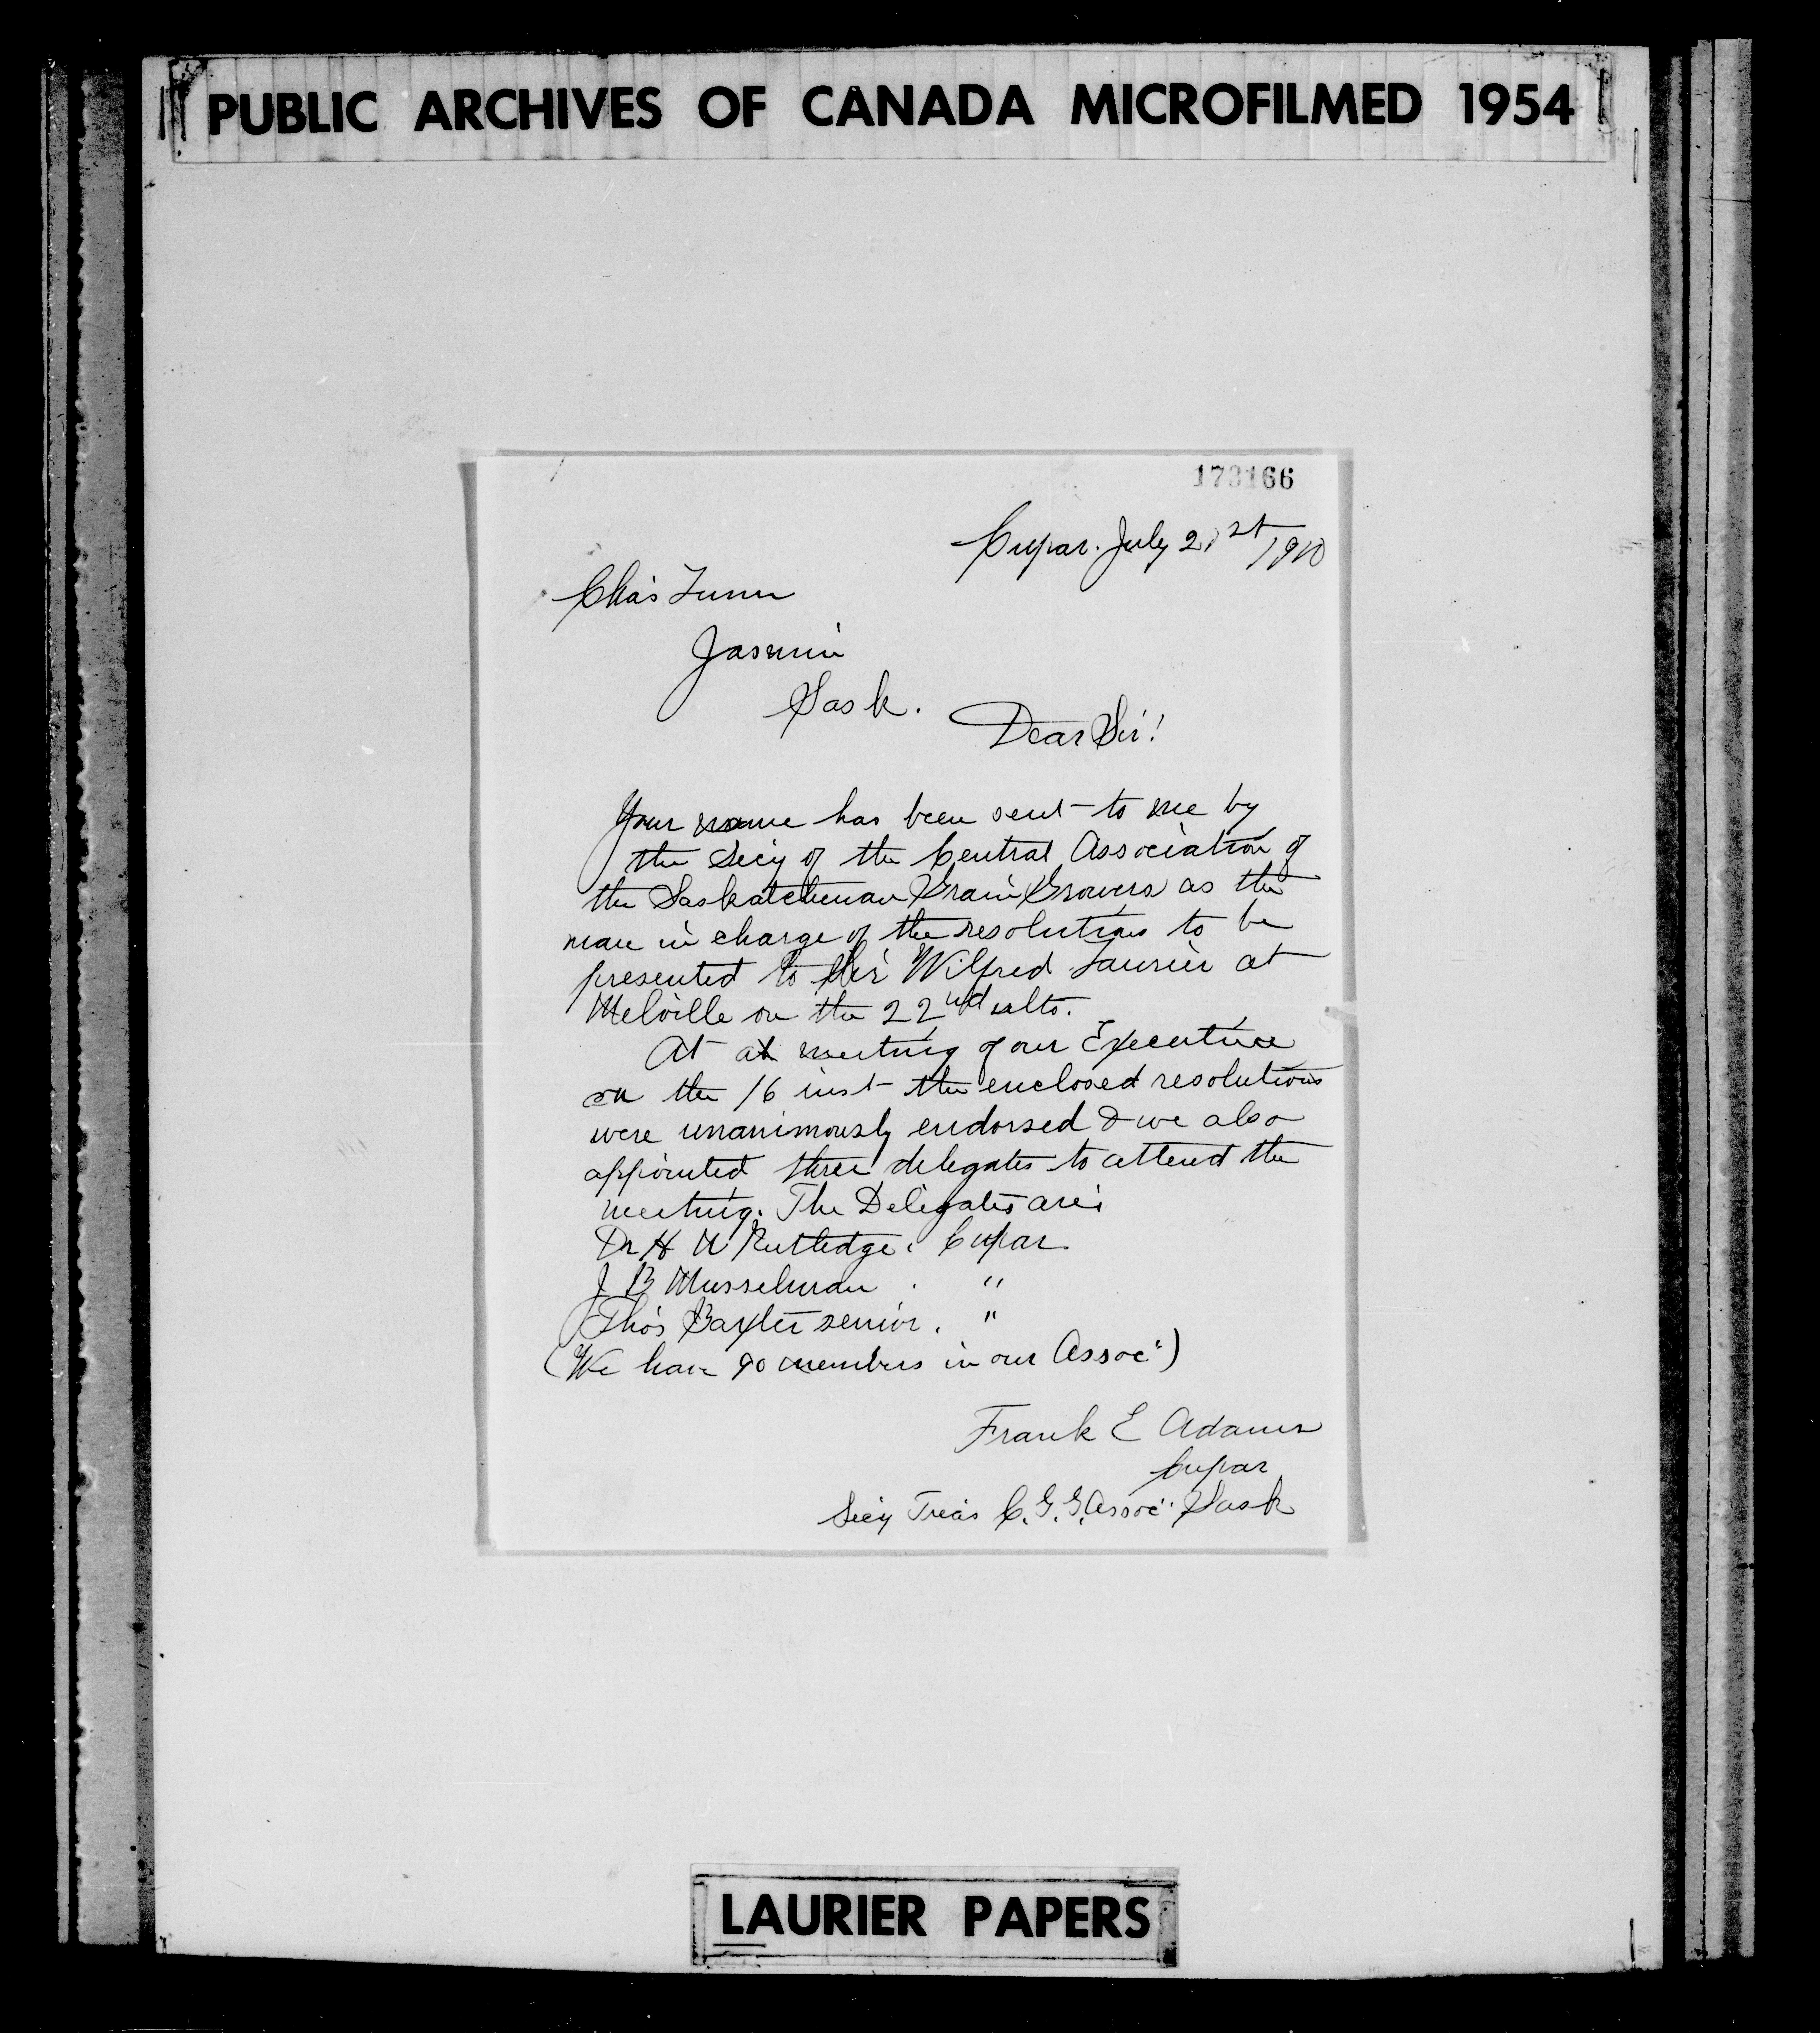 PUBLIC ARCHIVES OF CANADA MICROFILMED 1954
173166
Cupar. July 21st 1910
Chas Lunn
Jasmin
Sask.
Dear Sir!
Your name has been sent to me by
the Secy of the Central Association of
the Saskatchewan Grain Growers as the
man in charge of the resolutions to be
presented to Sir Wilfred Laurier at
Melville on the 22nd ulto.
At at meeting of our Executive
on the 16 inst the enclosed resolutions
were unanimously endorsed & we also
appointed three delegates to attend the
meeting. The Delegates are:
Dr H Rutledge. Cupar
J B Musselman . "
Thos Baxter senior. "
(We have 90 members in our Assoc")
Frank E Adams
Cupar
Secy Treas C. G. G. Assoc" Sask
LAURIER PAPERS